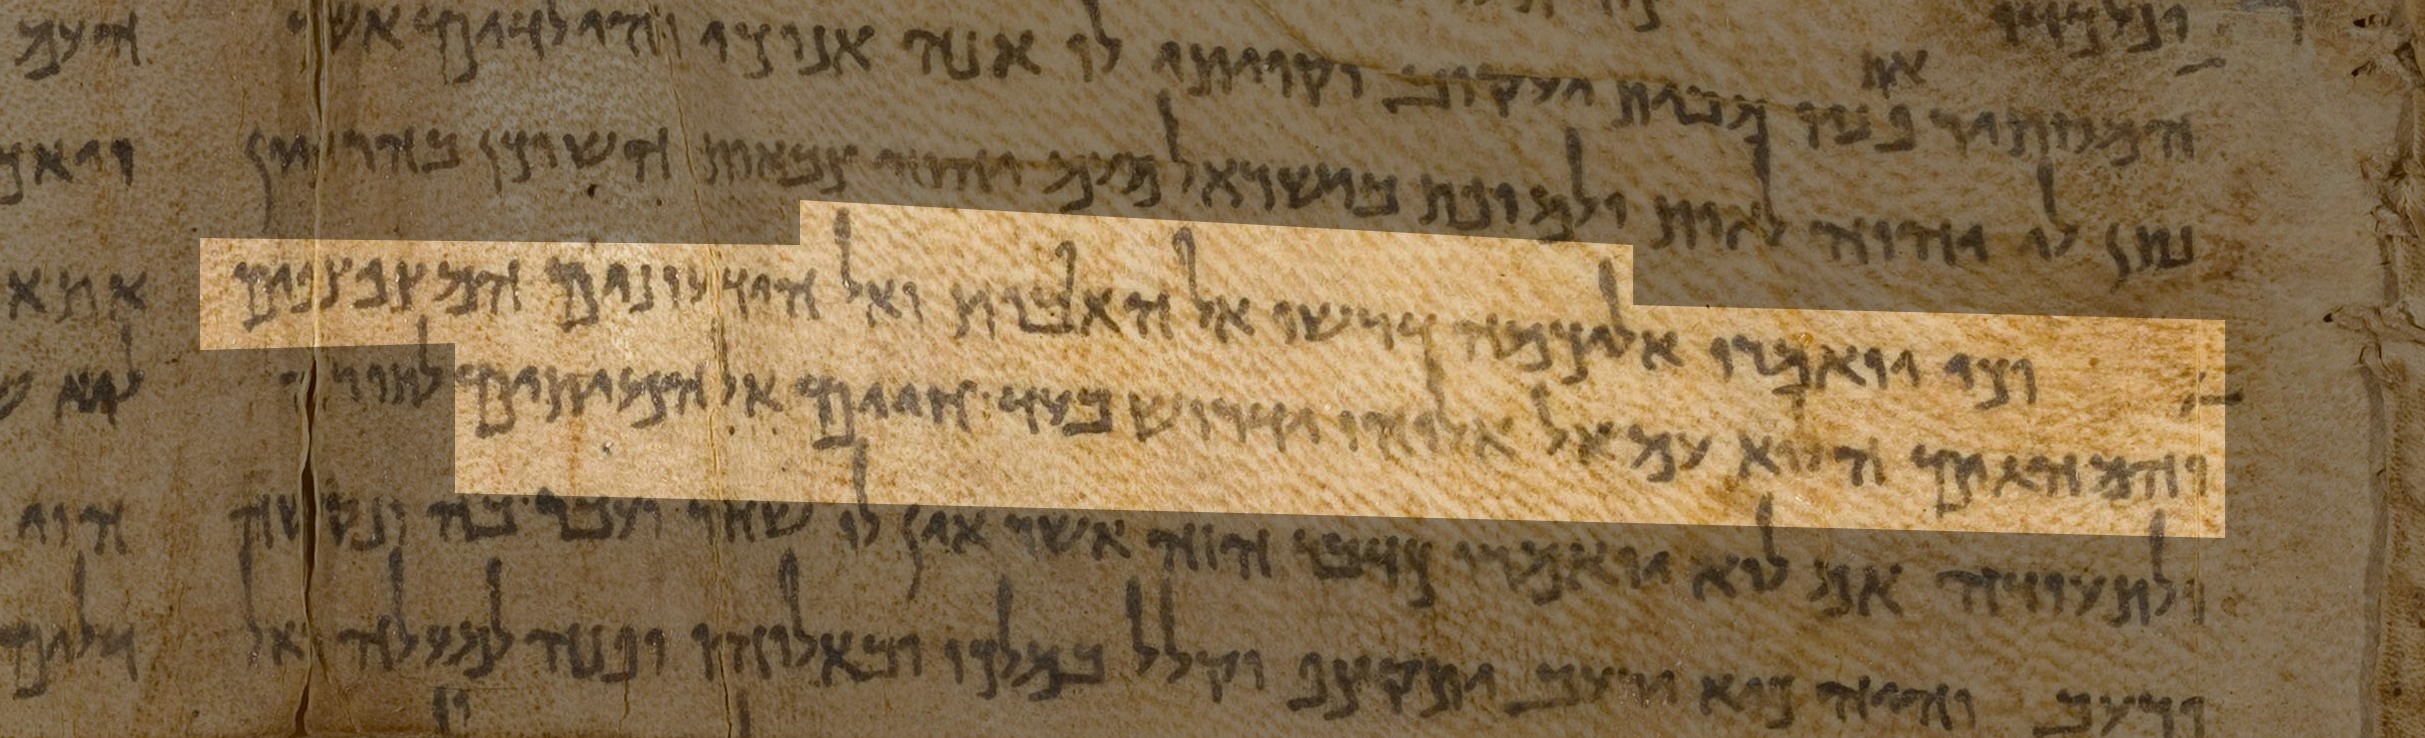 המסתיר את פניו מבית יעקוב וקויתי לו הנה אנוכי והילדים אשר
נתן לי יהוה לאות ולמופת בישראל מעם יהוה צבאות השוכן בהר ציון
וכי יואמרו אליכמה דרשו אל האבות ואל הידעונים המצפצפים
והמהגים הלוא עם אל אלוהיו ידרוש בעד החיים אל המיתים לתורה
ולתעודה אם לוא יואמרו כדבר הזה אשר אין לו שחר ועבר בה ונקשה
ורעב והיה כיא ירעב יתקצף וקלל במלכו ובאלוהיו ופנה למעלה אל